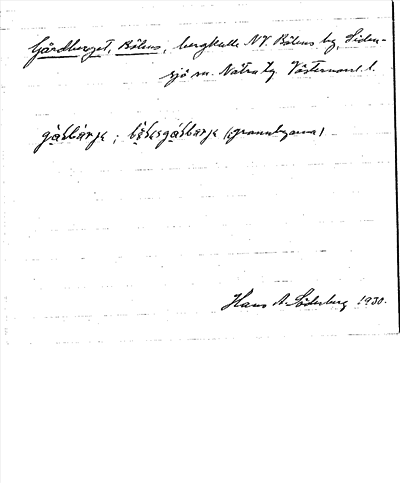 Gårdberget, Bölens, bergkulle NV. Bölens by, Siden-
sjö sn. Nätra tg. Västernorrl. l.
gȧƚbärjɛ ; bö̀lesgåƚbärjɛ (grannbyarna)
Hans A. Söderberg 1930.